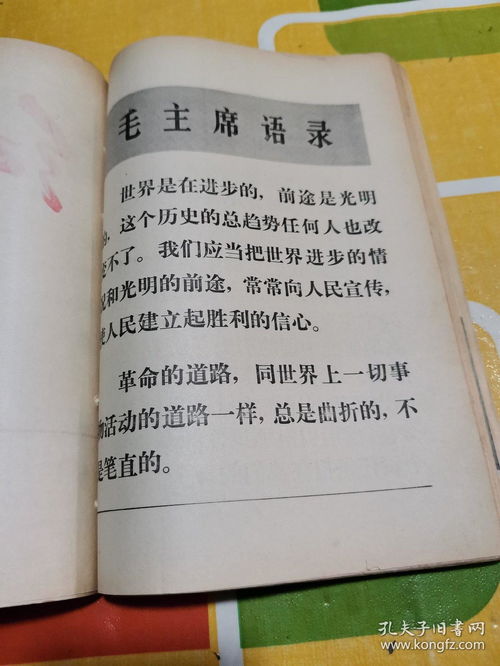 毛主席语录
世界是在进步的，前途是光明
的，这个历史的总趋势任何人也改
变不了。我们应当把世界进步的情
况和光明的前途，常常向人民宣传，
使人民建立起胜利的信心。
革命的道路，同世界上一切事
物活动的道路一样，总是曲折的，不
是笔直的。
孔夫子旧书网
www.kongfz.com